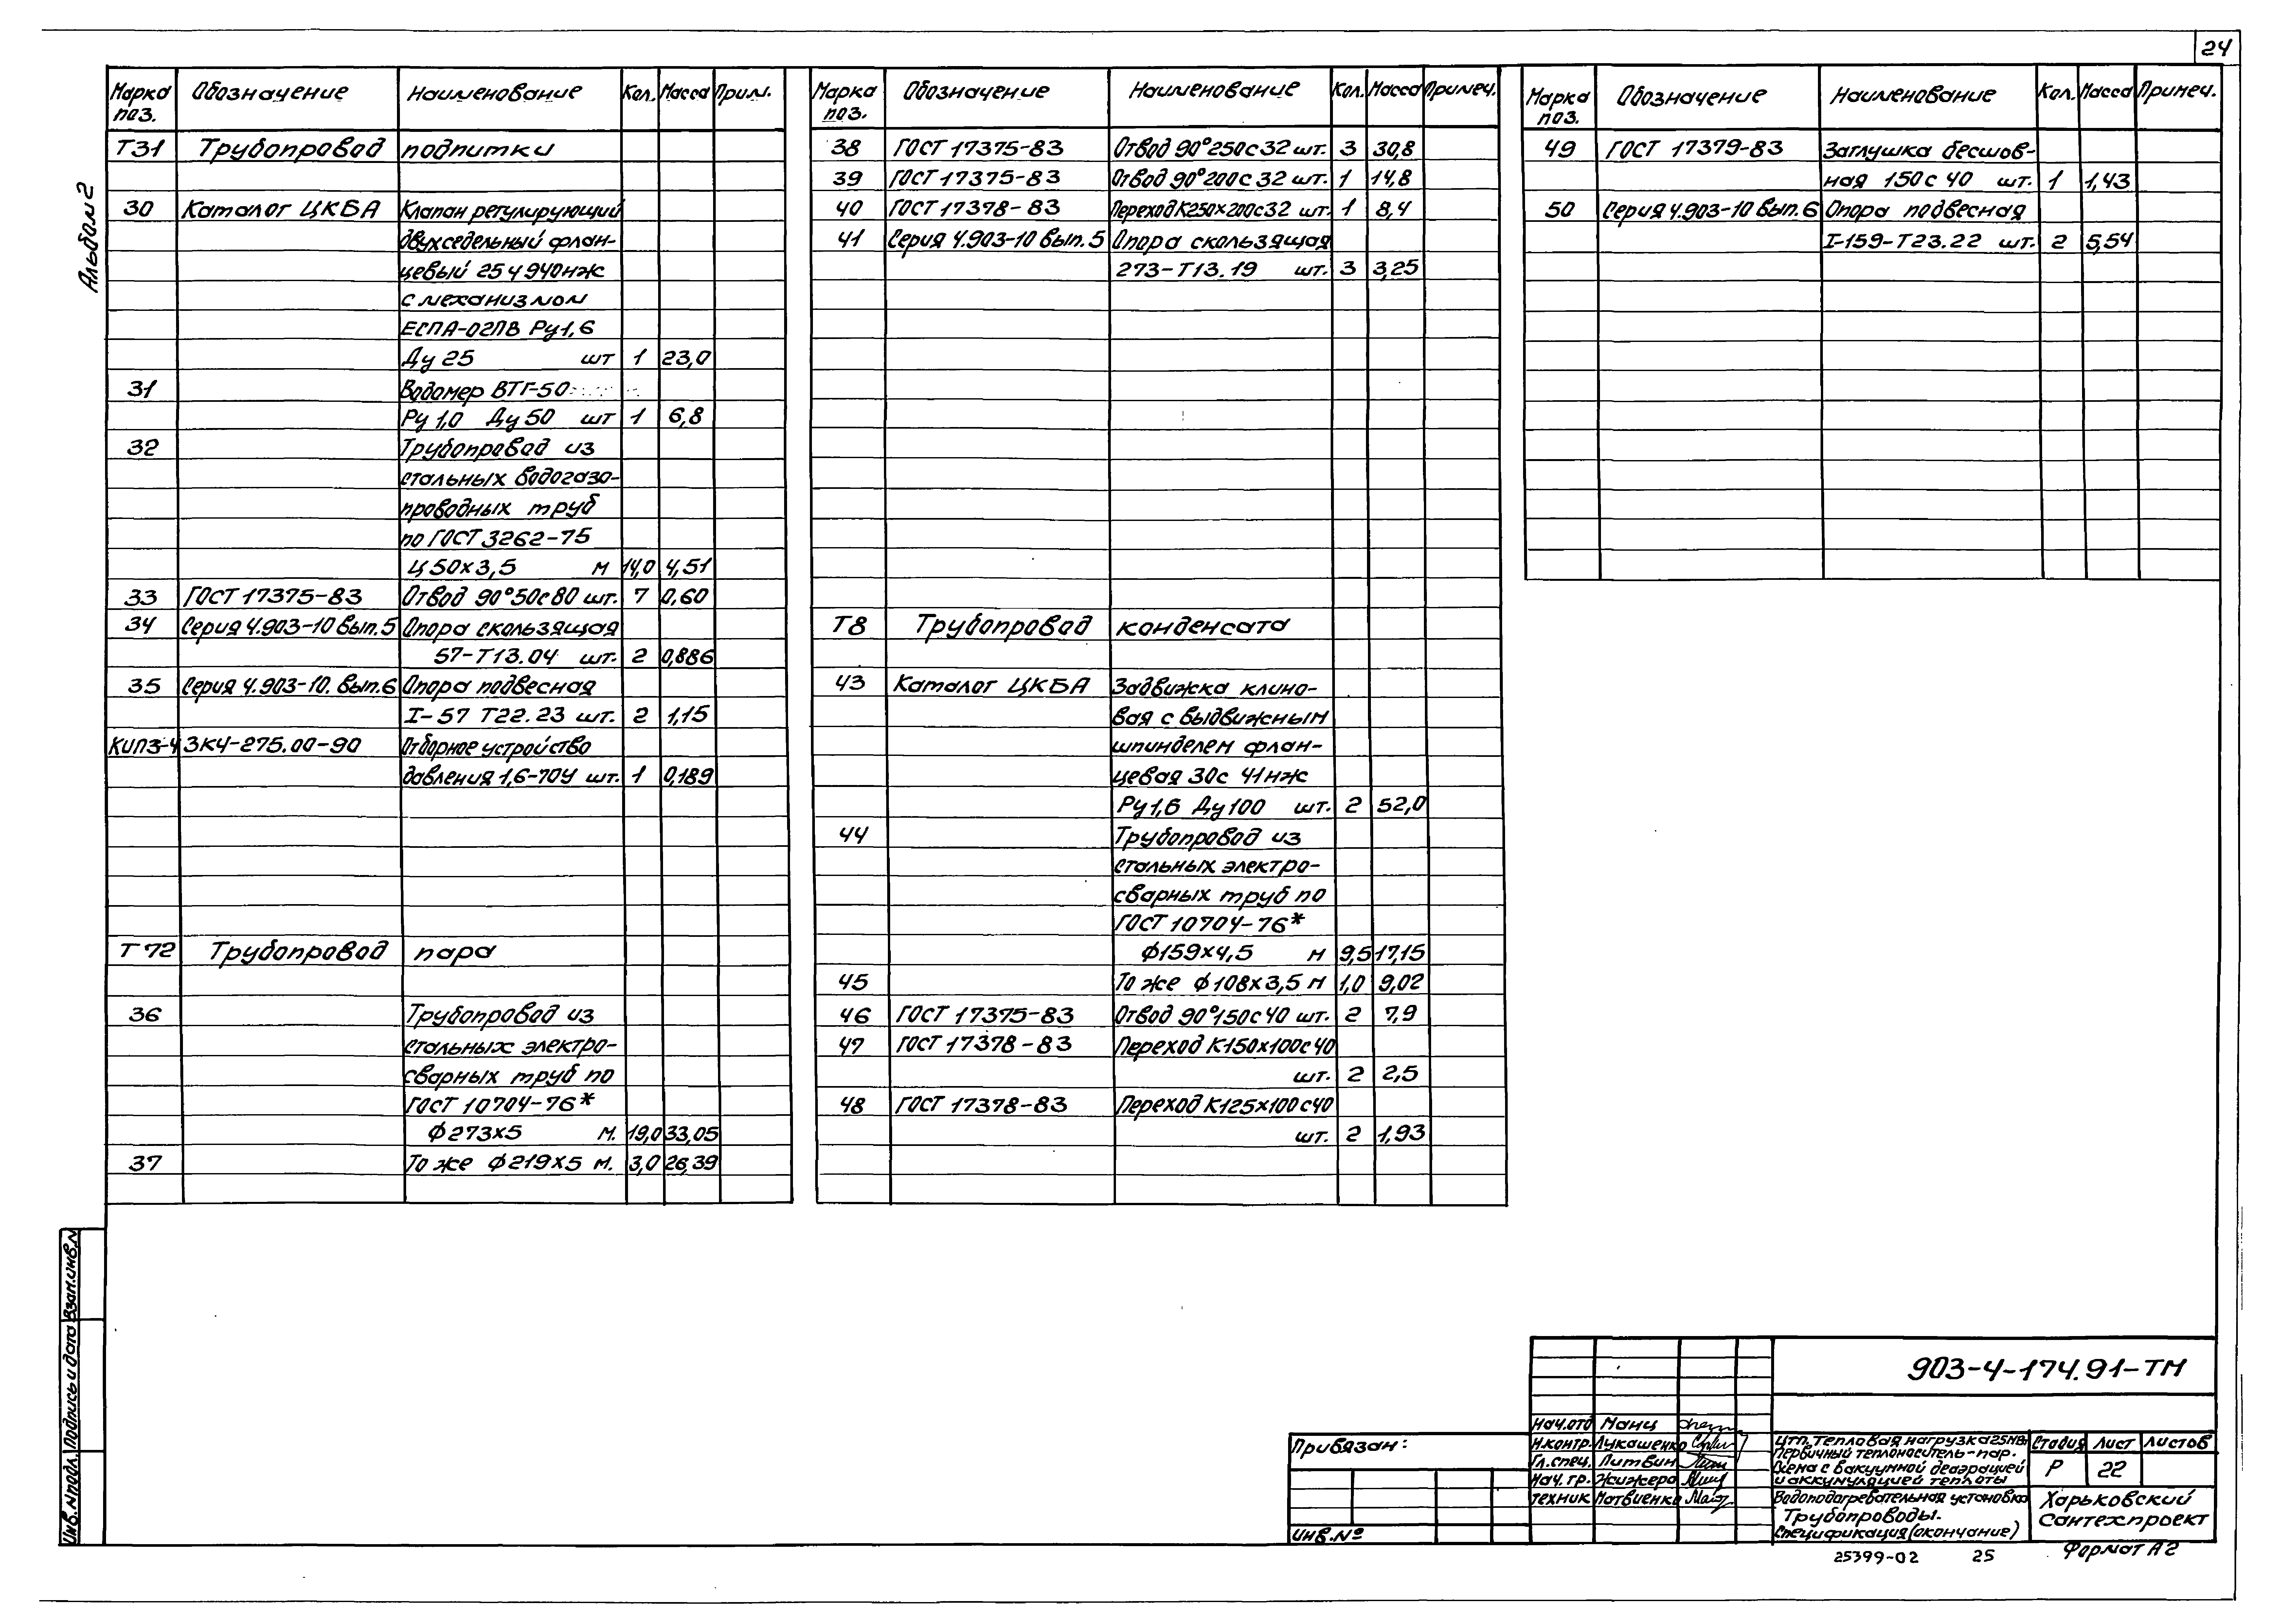 24
Альбом 2
Марка поз. Обозначение Наименование Кол. Масса Прим.
Т31 Трубопровод подпитки
30 Каталог ЦКБА Клапан регулирующий
двухседельный флан-
цевый 25ч 940нж
с механизмом
ЕСПА-02ПВ Ру1,6
Ду 25 шт 1 23,0
31 Водомер ВТГ-50
Ру 1,0 Ду 50 шт 1 6,8
32 Трубопровод из
стальных водогазо-
проводных труб
по ГОСТ 3262-75
Ц 50х3,5 м 14,0 4,51
33 ГОСТ 17375-83 Отвод 90°50с80 шт. 7 0,60
34 Серия 4.903-10 вып.5 Опора скользящая
57-Т13.04 шт. 2 0,886
35 Серия 4.903-10. вып.6 Опора подвесная
I-57 Т22.23 шт. 2 1,15
КИП3-4 ЗК4-275.00-90 Отборное устройство
давления 1,6-70У шт. 1 0,189
Т72 Трубопровод пара
36 Трубопровод из
стальных электро-
сварных труб по
ГОСТ 10704-76*
ф273х5 м. 19,0 33,05
37 То же ф219х5 м. 3,0 26,39
Марка поз. Обозначение Наименование Кол. Масса Примеч.
38 ГОСТ 17375-83 Отвод 90°250с32 шт. 3 30,8
39 ГОСТ 17375-83 Отвод 90°200с32 шт. 1 14,8
40 ГОСТ 17378-83 Переход К250х200с32 шт. 1 8,4
41 Серия 4.903-10 вып.5 Опора скользящая
273-Т13.19 шт. 3 3,25
Т8 Трубопровод конденсата
43 Каталог ЦКБА Задвижка клино-
вая с выдвижным
шпинделем флан-
цевая 30с 41нж
Ру1,6 Ду100 шт. 2 52,0
44 Трубопровод из
стальных электро-
сварных труб по
ГОСТ 10704-76*
ф159х4,5 м 9,5 17,15
45 То же ф108х3,5 м 1,0 9,02
46 ГОСТ 17375-83 Отвод 90°150с40 шт. 2 7,9
47 ГОСТ 17378-83 Переход К150х100с40
шт. 2 2,5
48 ГОСТ 17378-83 Переход К125х100с40
шт. 2 1,93
Марка поз. Обозначение Наименование Кол. Масса Примеч.
49 ГОСТ 17379-83 Заглушка бесшов-
ная 150с40 шт. 1 1,43
50 Серия 4.903-10 вып.6 Опора подвесная
I-159-Т23.22 шт. 2 5,54
Инв.№подл. Подпись и дата Взам.инв.№
Привязан:
Инв.№
903-4-174.91-ТМ
Нач.отд Манц
Н.контр. Лукашенко
Гл.спец. Литвин
Нач.гр. Жижера
Техник Матвиенко
ЦТП. Тепловая нагрузка 25МВт
Первичный теплоноситель-пар.
Схема с вакуумной деаэрацией
и аккумуляцией теплоты
Стадия Лист Листов
Р 22
Водоподогревательная установка
Трубопроводы.
Спецификация (окончание)
Харьковский
Сантехпроект
25399-02 25 Формат А2